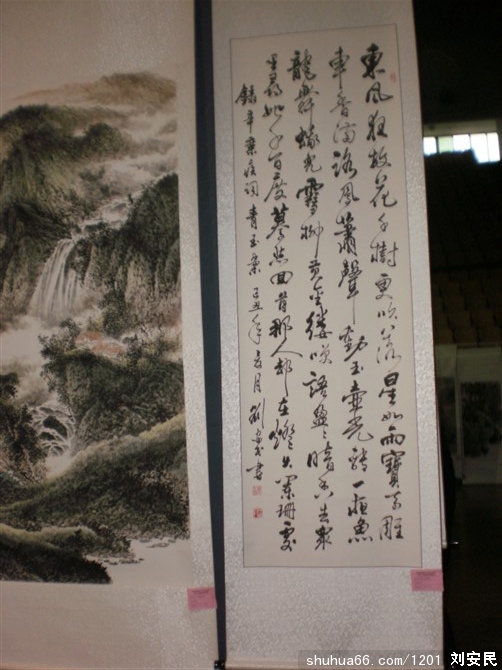 東風夜放花千樹更吹落星如雨寶馬雕
車香滿路風簫聲動玉壺光轉一夜魚
龍舞蛾兒雪柳黃金縷笑語盈盈暗香去眾
里尋他千百度驀然回首那人卻在燈火闌珊處
錄辛棄疾詞青玉案 己丑年 月 劉安民書
shuhua66.com/1201 刘安民